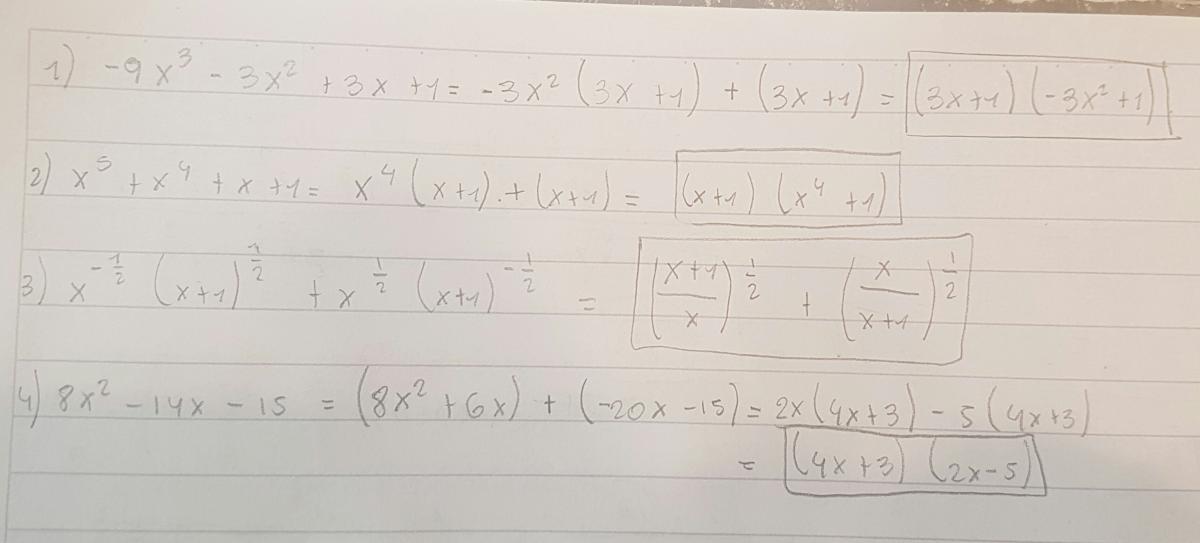 1) -9x³ - 3x² + 3x + 1 = -3x² (3x + 1) + (3x + 1) = (3x+1) (-3x² + 1)
2) x⁵ + x⁴ + x + 1 = x⁴ (x+1) . + (x+1) = (x+1) (x⁴ + 1)
3) x^(-1/2) (x+1)^(1/2) + x^(1/2) (x+1)^(-1/2) = ((x+1)/x)^(1/2) + (x/(x+1))^(1/2)
4) 8x² - 14x - 15 = (8x² + 6x) + (-20x - 15) = 2x(4x+3) - 5(4x+3)
= (4x+3) (2x-5)